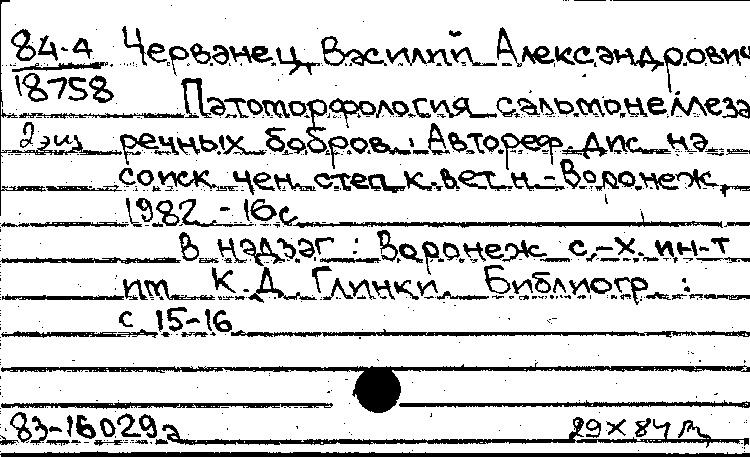 84-4 Черванец, Василий Александрович
18758 Патоморфология сальмонеллеза
2 экз речных бобров : Автореф. дис. на
соиск учен. степ. к. вет. н. - Воронеж,
1982. - 16 с
В надзаг : Воронеж с.-х. ин-т
им К.Д. Глинки. Библиогр. :
с 15-16
83-16029а 29 X 84